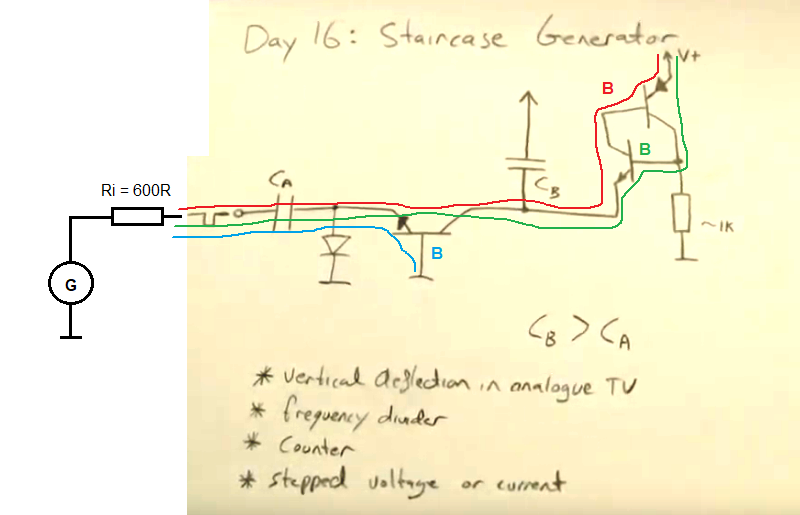 Day 16: Staircase Generator
V+
B
B
Ri = 600R
CA
CB
~1K
B
G
CB > CA
* vertical deflection in analogue TV
* frequency divider
* Counter
* stepped voltage or current